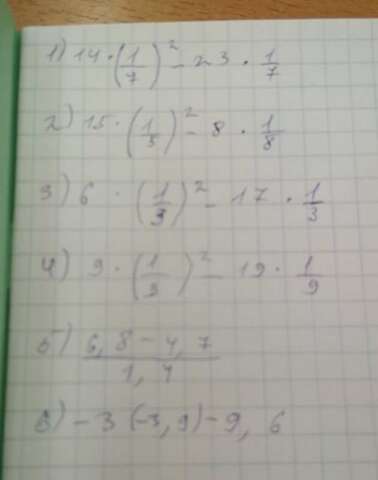 1) 14 · (1/7)² - 23 · 1/7
2) 15 · (1/5)² - 8 · 1/8
3) 6 · (1/3)² - 17 · 1/3
4) 9 · (1/9)² - 19 · 1/9
5) 6,8 - 4,7 / 1,4
6) - 3 (-3,9) - 9,6